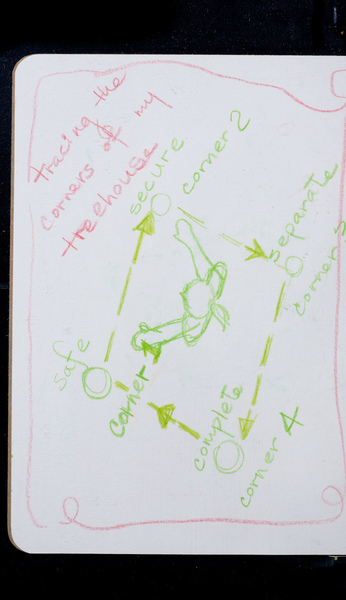 tracing the
corners of my
treehouse
secure
corner 2
separate
corner 3
safe
corner 1
complete
corner 4